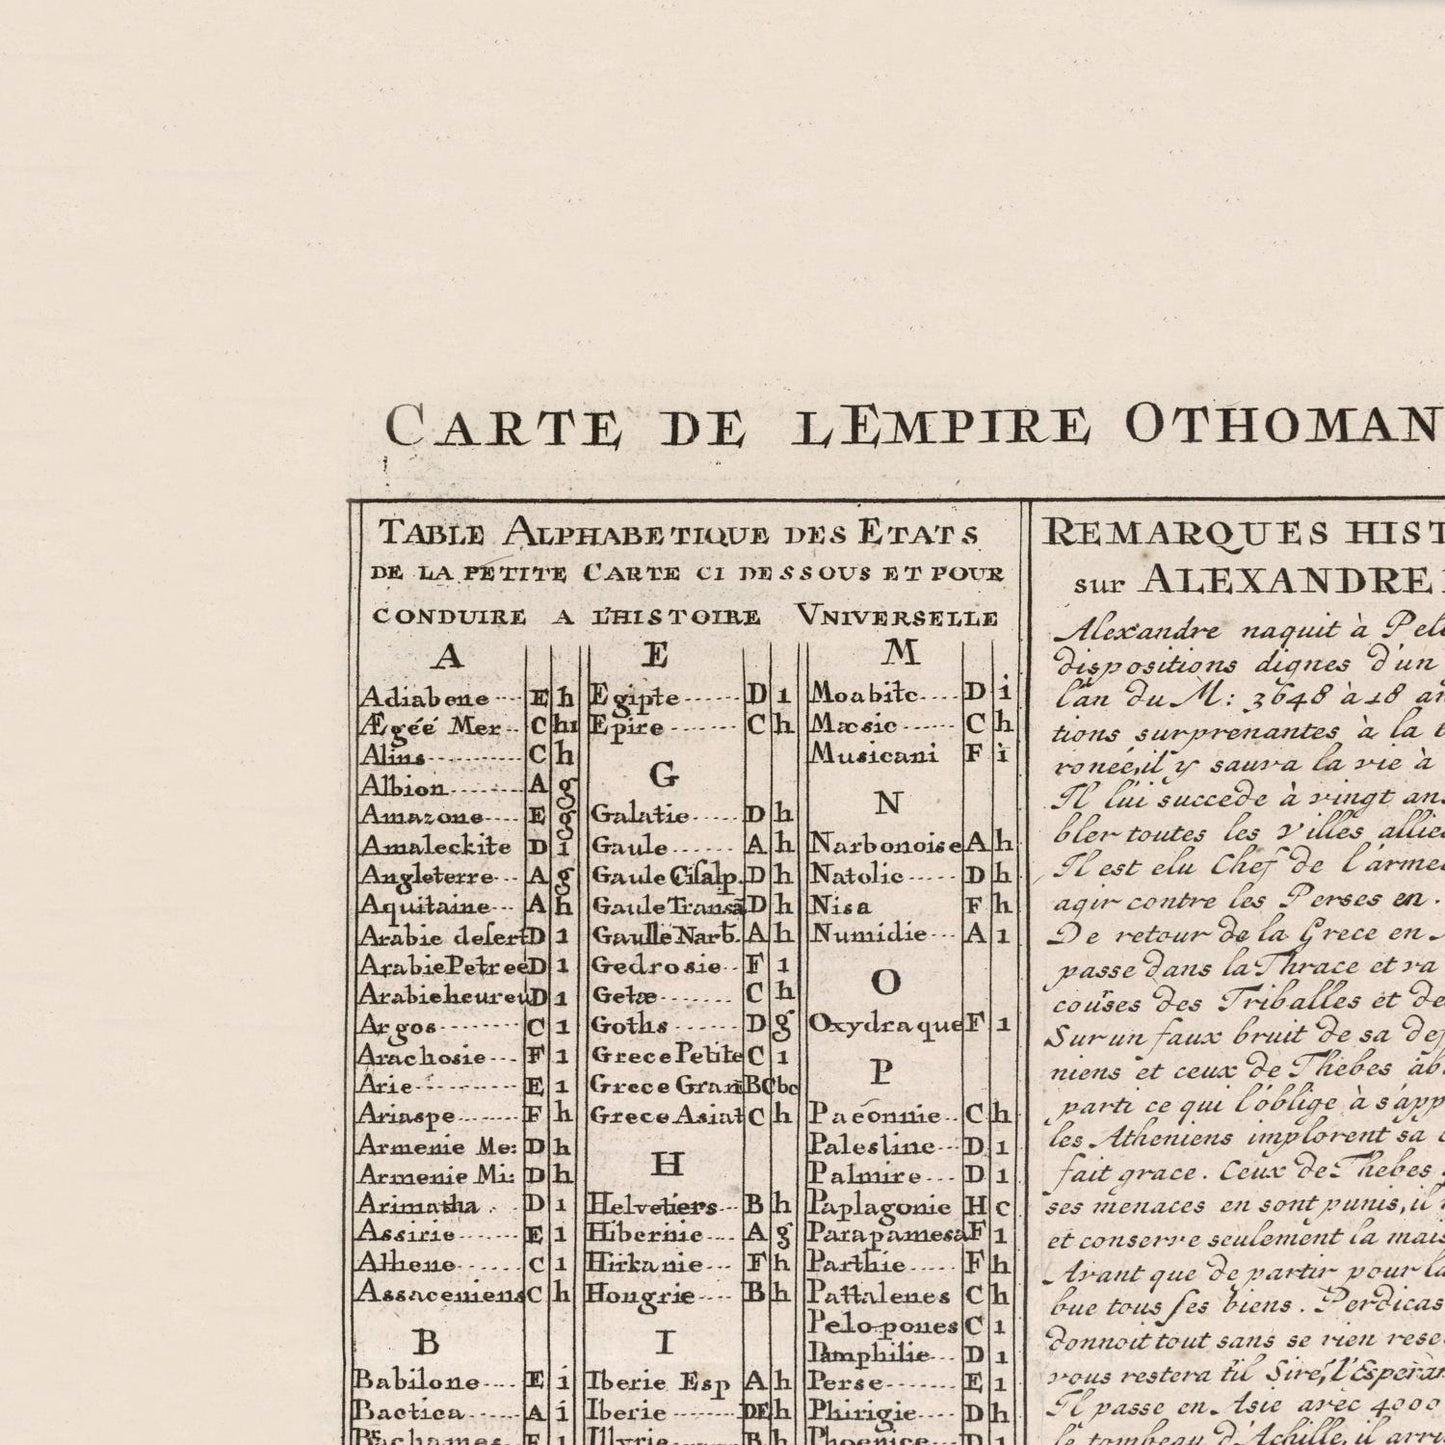 CARTE DE LEMPIRE OTHOMAN
TABLE ALPHABETIQUE DES ETATS
DE LA PETITE CARTE CI DESSOUS ET POUR
CONDUIRE A L'HISTOIRE VNIVERSELLE
A
Adiabene E h
Ægéé Mer C hi
Alins C h
Albion A g
Amazone E g
Amaleckite D i
Angleterre A g
Aquitaine A h
Arabie desert D 1
Arabie Petreé D 1
Arabie heureu D 1
Argos C 1
Arachosie F 1
Arie E 1
Ariaspe F h
Armenie Me: D h
Armenie Mi: D h
Arimatha D 1
Assirie E 1
Athene C 1
Assaceniens C h
B
Babilone E i
Baetica A i
E
Egipte D 1
Epire C h
G
Galatie D h
Gaule A h
Gaule Cisalp. D h
Gaule Transa D h
Gaulle Narb. A h
Gedrosie F 1
Getæ C h
Goths D g
Grece Petite C 1
Grece Gran BC bc
Grece Asiat C h
H
Helvetiers B h
Hibernie A g
Hirkanie F h
Hongrie B h
I
Iberie Esp A h
Iberie DE h
Illyrie B h
M
Moabite D i
Mæsie C h
Musicani F i
N
Narbonoise A h
Natolie D h
Nisa F h
Numidie A 1
O
Oxydraque F 1
P
Paeonnie C h
Palestine D 1
Palmire D 1
Paplagonie H c
Parapamesa F 1
Parthie F h
Pattalenes C h
Pelopones C 1
Pamphilie D 1
Perse E 1
Phirigie D h
Phoenice D 1
REMARQUES HIST
sur ALEXANDRE
Alexandre naquit à Pel
dispositions dignes d'un
l'an du M: 3648 à 18 an
tions surprenantes à la t
roneé, il y sauva la vie à
Il lui succede à vingt ans
bler toutes les villes allie
Il est elu Chef de l'armeé
agir contre les Perses en
De retour de la Grece en
passe dans la Thrace et va
couses des Triballes et de
Sur un faux bruit de sa de
niens et ceux de Thebes ab
parti ce qui l'oblige à s'app
les Atheniens implorent sa
fait grace. Ceux de Thebes
ses menaces en sont punis, il
et conserve seulement la mais
Avant que de partir pour la
bue tous ses biens. Perdicas
donnoit tout sans se rien rese
vous restera t'il Sire, l'Esperan
Il passe en Asie avec 4000
le tombeau d'Achille, il arri